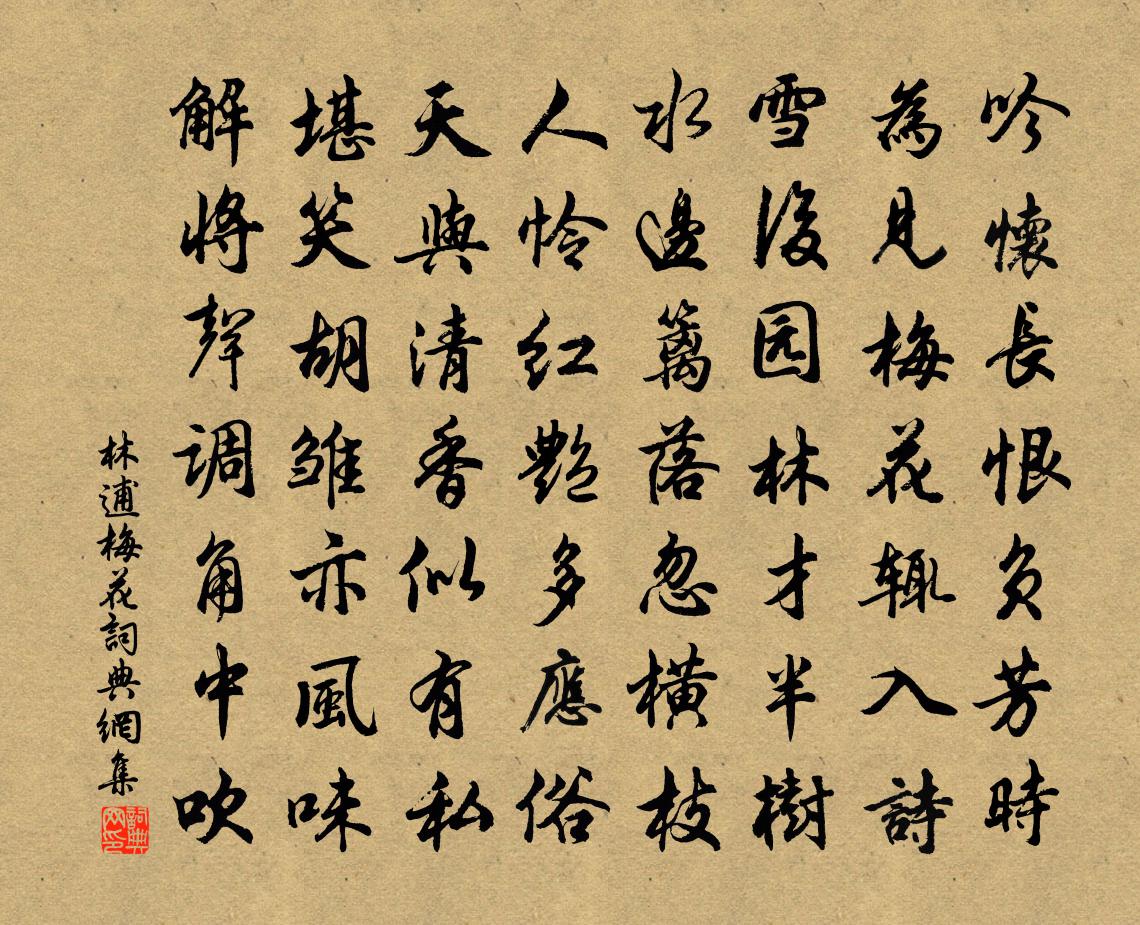 吟懷長恨负芳時
為見梅花辄入詩
雪後园林才半樹
水邊籬落忽橫枝
人怜红艷多應俗
天與清香似有私
堪笑胡雏亦風味
解將聲调角中吹
林逋梅花詞典網集
詞典网印